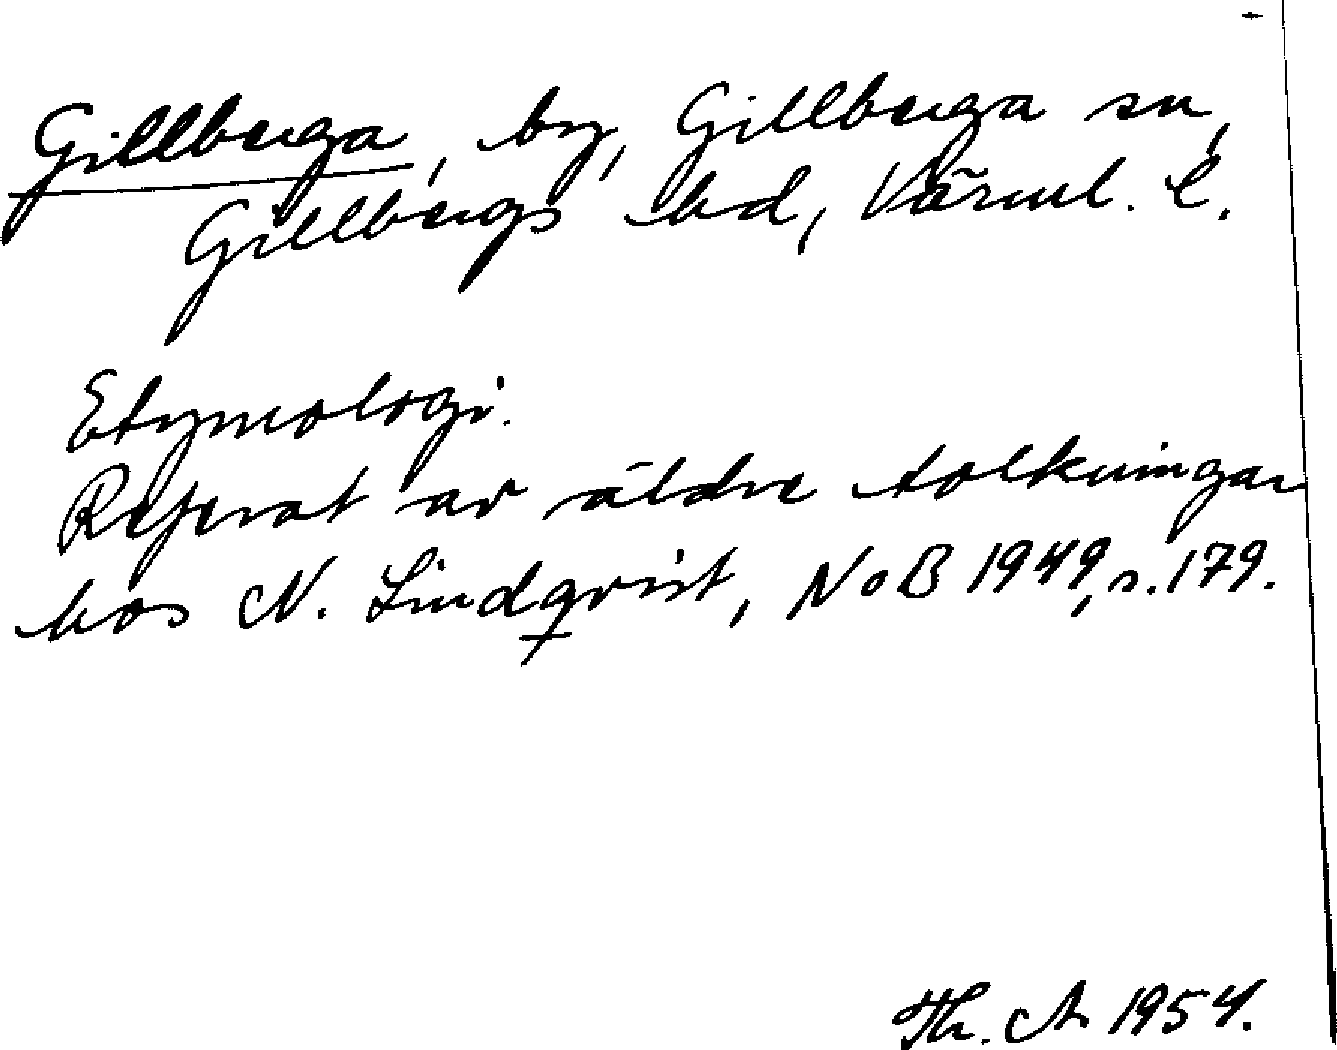 Gillberga, by, Gillberga sn,
Gillbergs hd, Värml. l.
Etymologi.
Referat av äldre tolkningar
hos N. Lindqvist, NoB 1949, s. 179.
Th. A 1954.